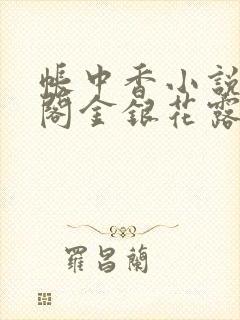 帳中香小說
閣金銀花露
羅昌蘭